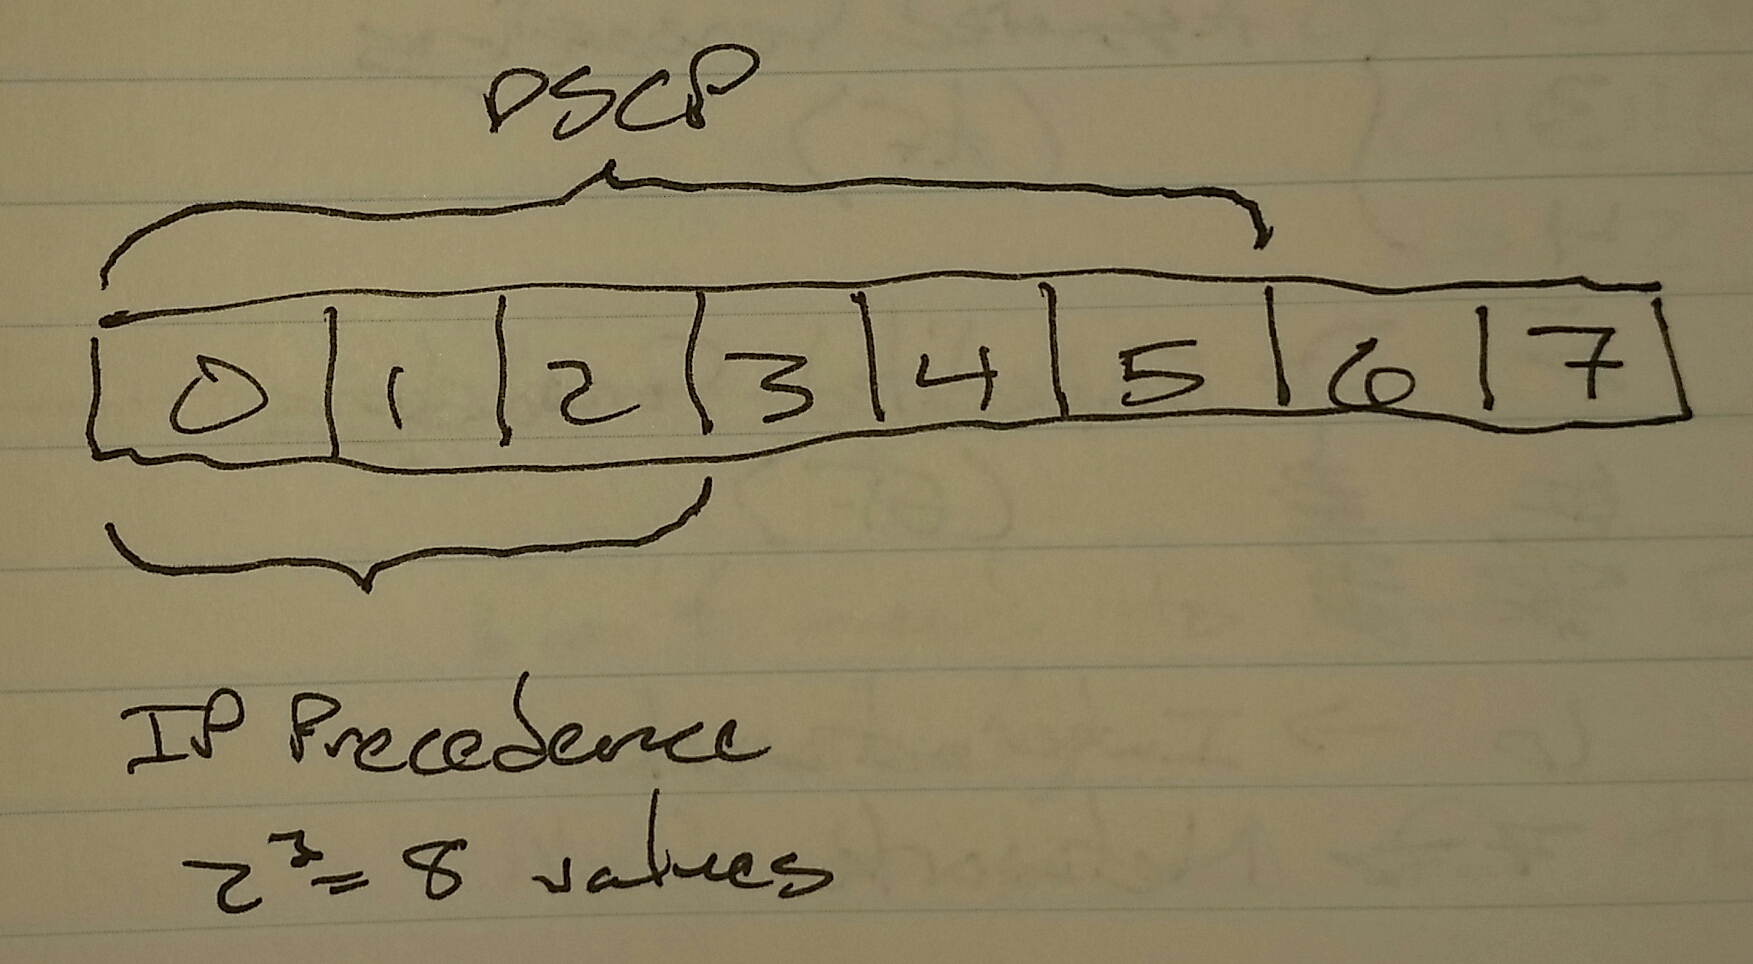 DSCP
0 1 2 3 4 5 6 7
IP Precedence
2³ = 8 values